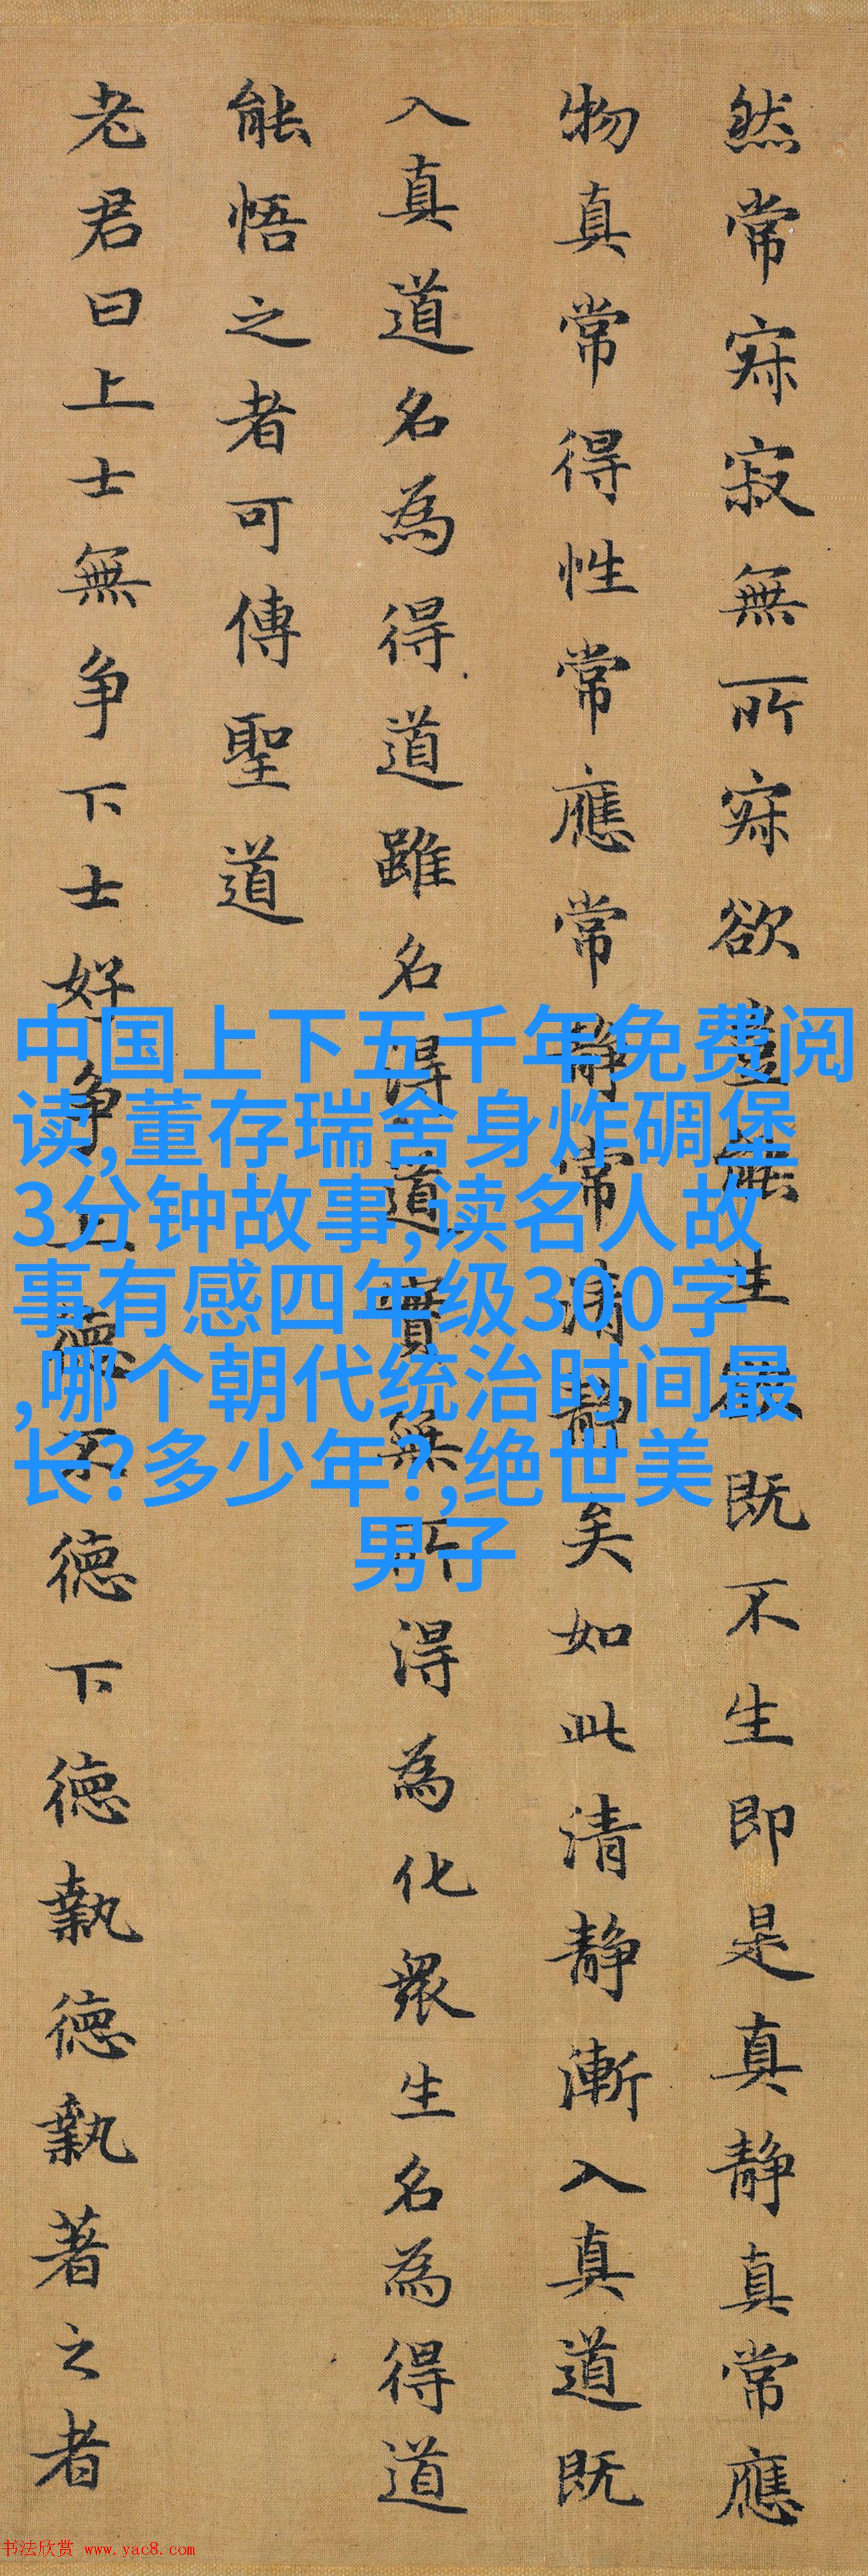 然常寂寂無所寂欲豈能生欲既不生即是真静真常應
物真常得性常應常静常清静矣如此清静漸入真道既
入真道名為得道雖名得道實無所得為化衆生名為得道
能悟之者可傳聖道
老君曰上士無争下士好争上德不德下德執德執著之者
中国上下五千年免费阅
读,董存瑞舍身炸碉堡
3分钟故事,读名人故
事有感四年级300字
,哪个朝代统治时间最
长?多少年?,绝世美
男子
书法欣赏 www.yac8.com